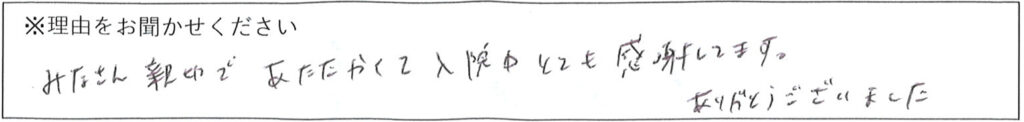 ※理由をお聞かせください
みなさん親切であたたかくて入院中とても感謝してます。
ありがとうございました